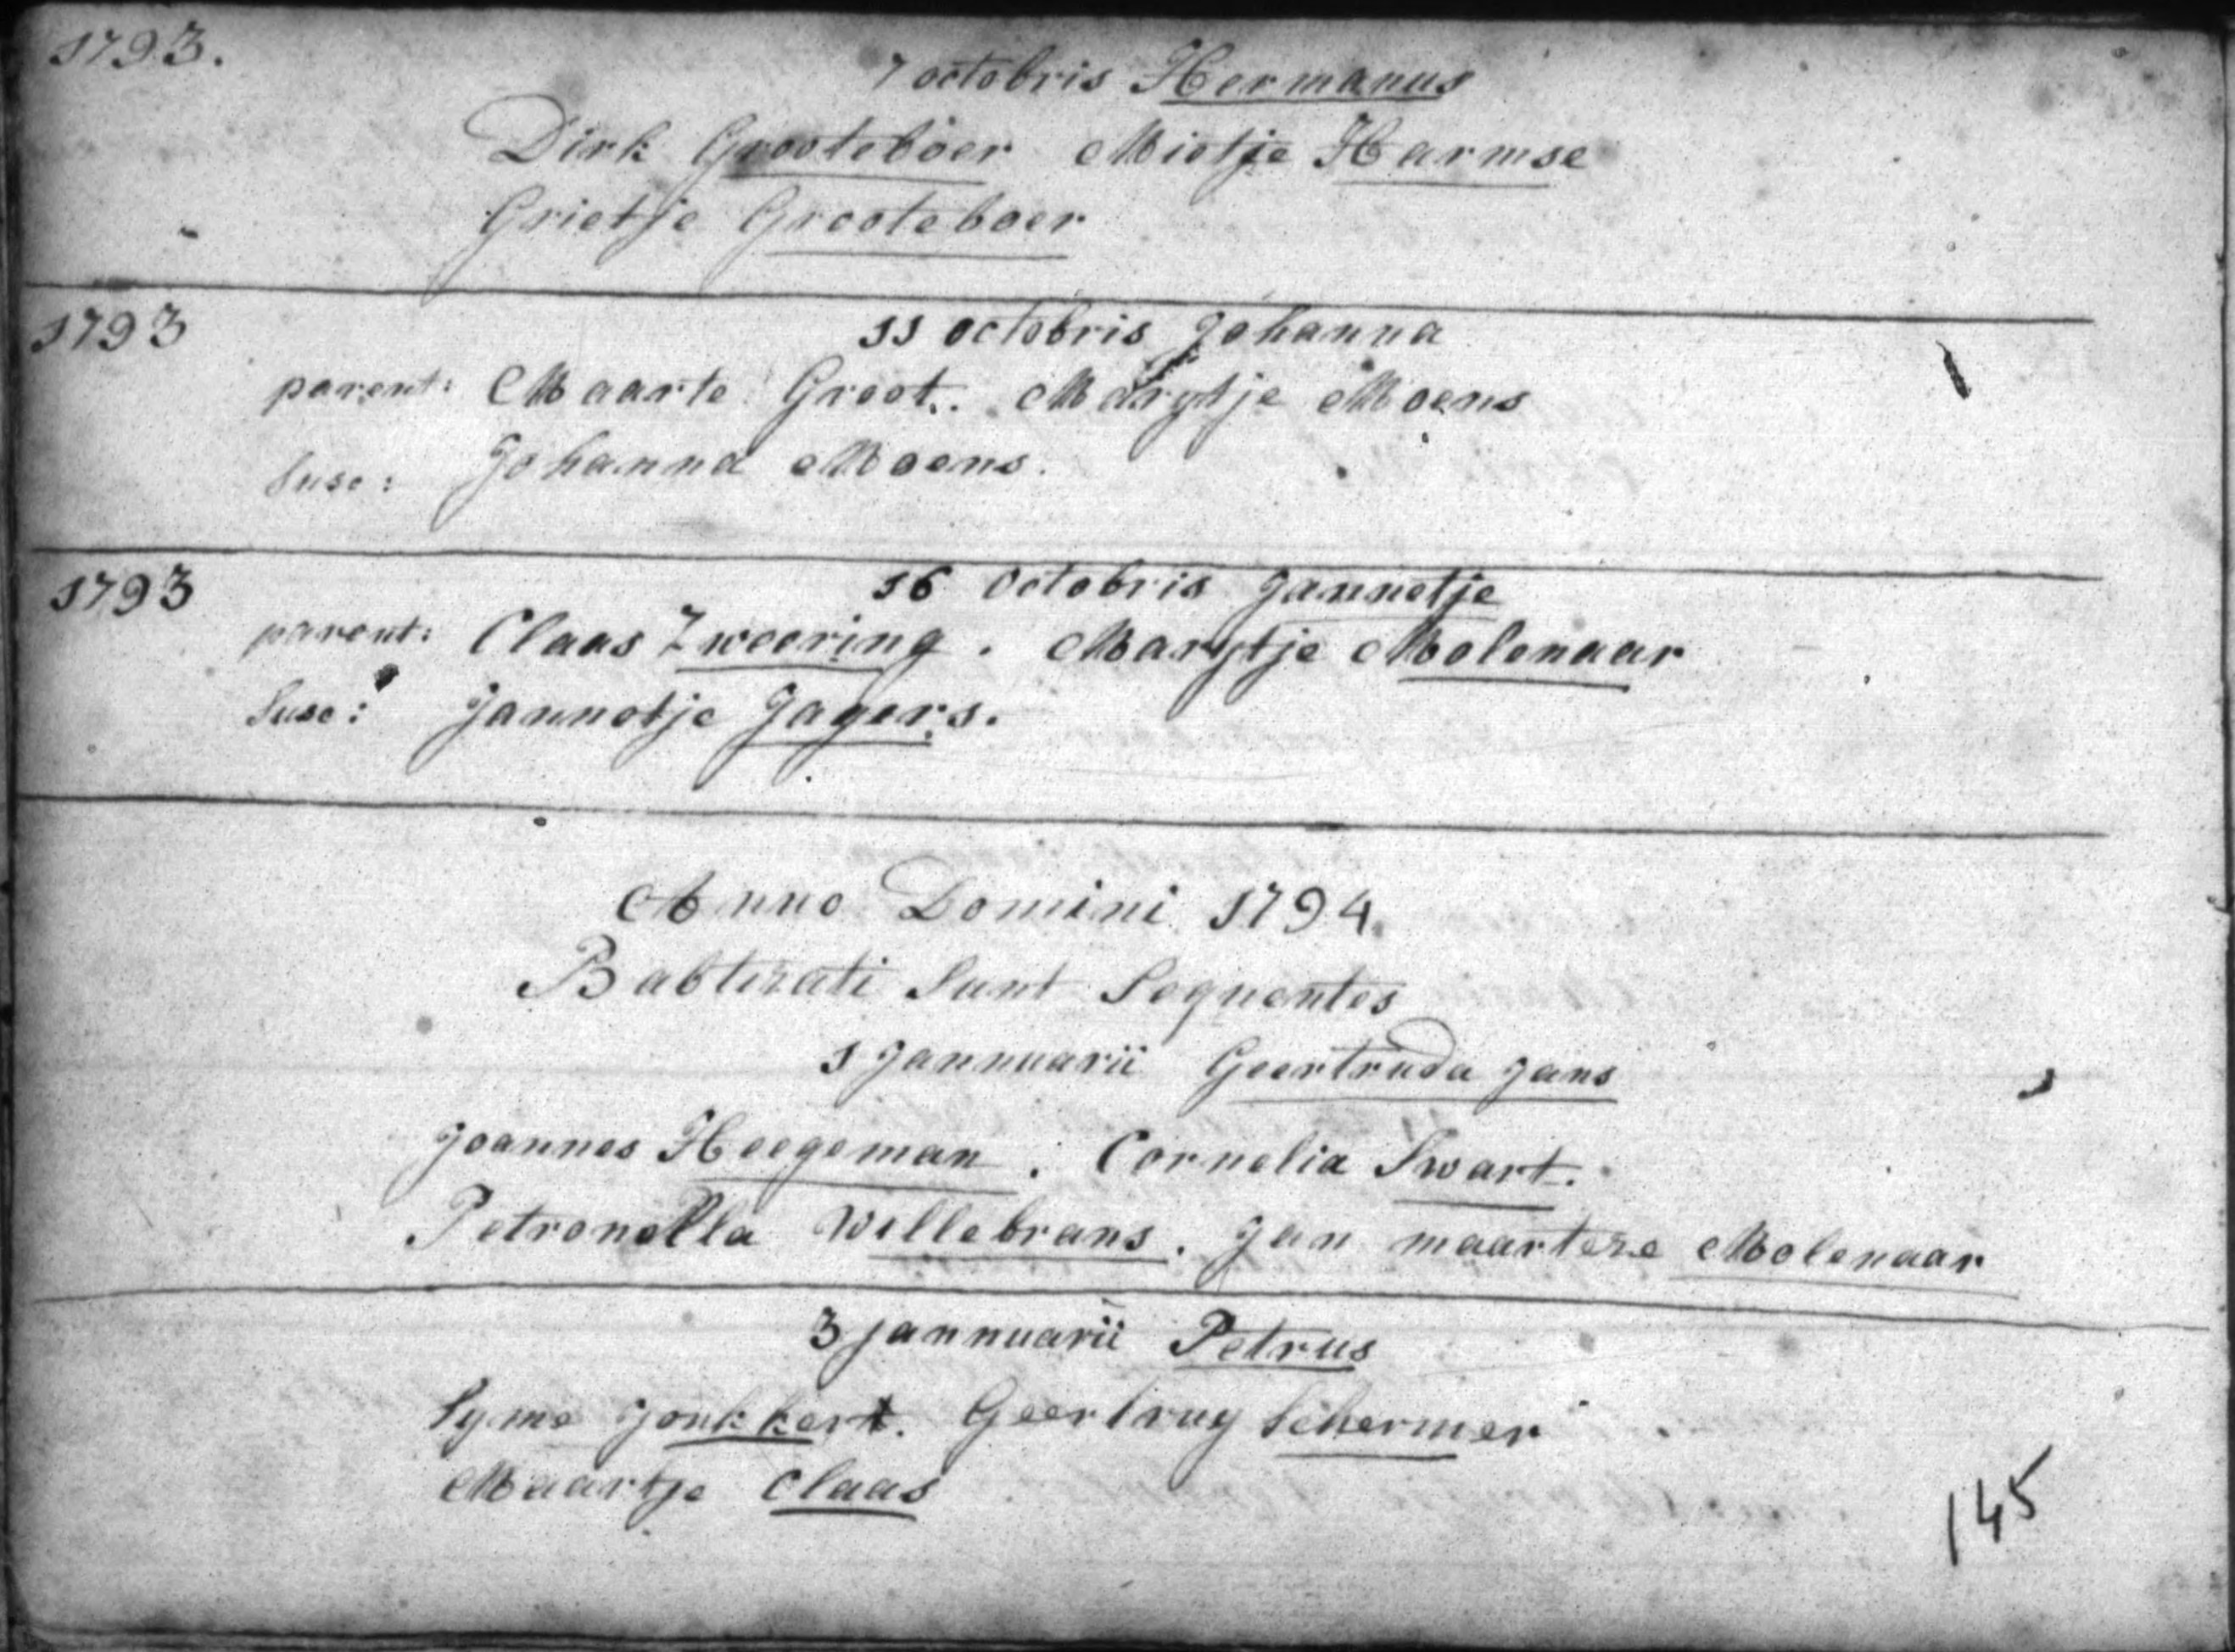 1793.
7 octobris Hermanus
Dirk Grooteboer Mietje Harmse
Grietje Grooteboer
1793
11 octobris Johanna
parent: Maarte Groot. Marytje Moens
Susc: Johanna Moens.
1793
16 Octobris Jannetje
parent: Claas Zweering. Marytje Molenaar
Susc: Jannetje Jagers.
Anno Domini 1794
Babtizati Sunt Sequentes
1 Jannuarii Geertruda Jans
Joannes Heegeman. Cornelia Swart.
Petronella Willebrans. Jan maartese Molenaar
3 Jannuarii Petrus
Syme Jonkkert. Geertruy Schermer
Maartje Claas
145